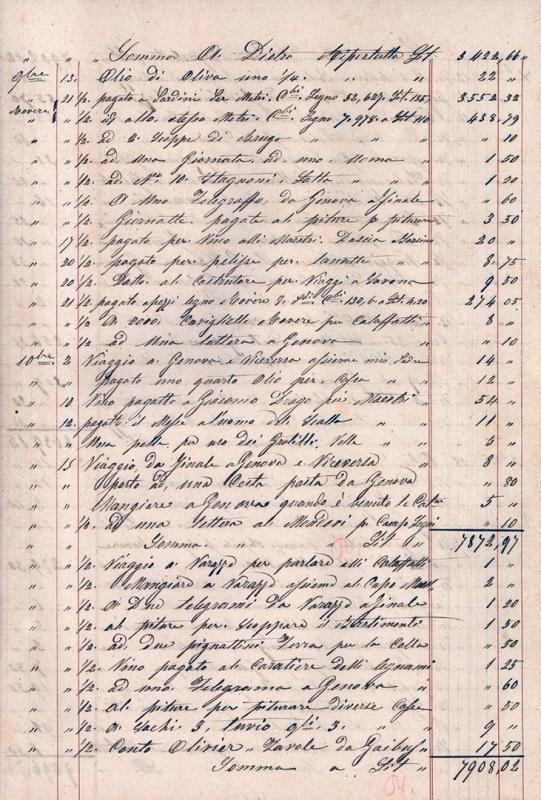 " " " Somma A. Dietro Riportatta Lit 3422,66
9bre 13. Olio di Oliva uno 1/4 " " 22 "
" 21 1/2. pagato a Sardini Per Metri. Legno 3552 32
Rovere " 1/2. id allo stesso Metri. Legno 7,978. a Lit 110 438.79
" " 1/2. ad 2 Stoppe di " " 10
" " 1/2. ad. Una Giornata. ad. uno. " 1 50
" " 1/2. ad. No. 10. Stagnoni. Latta " " 1 20
" " 1/2. A Uno Telegraffo. da Genova a Finale " 60
" " 1/2. Giornatte. pagate al pitore p piturare 3 50
" 17 1/2. pagato per Vino alli Maestri. 20 "
" 20 1/2. pagato per " " 8.75
" 20 1/2. Datto. al Costrutore per Viaggi a Savona 9 50
" 21 1/2. pagato apezzi legno Rovere 274 05
" " 1/2. A 2000. Cavigliette Rovere per Calaffatti " 8 "
" " 1/2. ad Una lettera a Genova " " 10
10bre. 2 Viaggio a Genova e Viceversa assieme mio Padre 14 "
" " pagato uno quarto Olio per. Casa " 12 "
" 10 Vino pagatto a Giacomo Drago per Maestri " 54 "
" 12. pagato il Mese a l'uomo del Stalla " 11 "
" " Una per uso dei " 5 "
" 15 Viaggio, da Finale a Genova e Viceversa " 8 "
" " porto ad, una Cesta pasta da Genova " 80
" " Mangiare a Genova quando è venuto le 5 "
" " 1/2. ad una lettera al p Campo " 10
Somma. " " Lit " 7872,97
" " 1/2. Viaggio a Varazze per parlare alli Calaffatti 1 "
" " 1/2. Mangiare a Varazze assieme al Capo 2 "
" " 1/2. a Due Telegrami da Varazze a Finale 1 20
" " 1/2. al pitore per stoppare il Bastimenti 1 50
" " 1/2. ad. due pignattini Terra per la Colla " 50
" " 1/2. Vino pagato al Caratiere delli legnami 1 25
" " 1/2. ad uno. Telegramma a Genova " " 60
" " 1/2. Al pitore per piturare diverse Case " 50
" " 1/2. A Sachi 3, 3. " 9 "
" " 1/2. Conto Olivier " Tavole da " 17 50
Somma a Lit " 7908,02